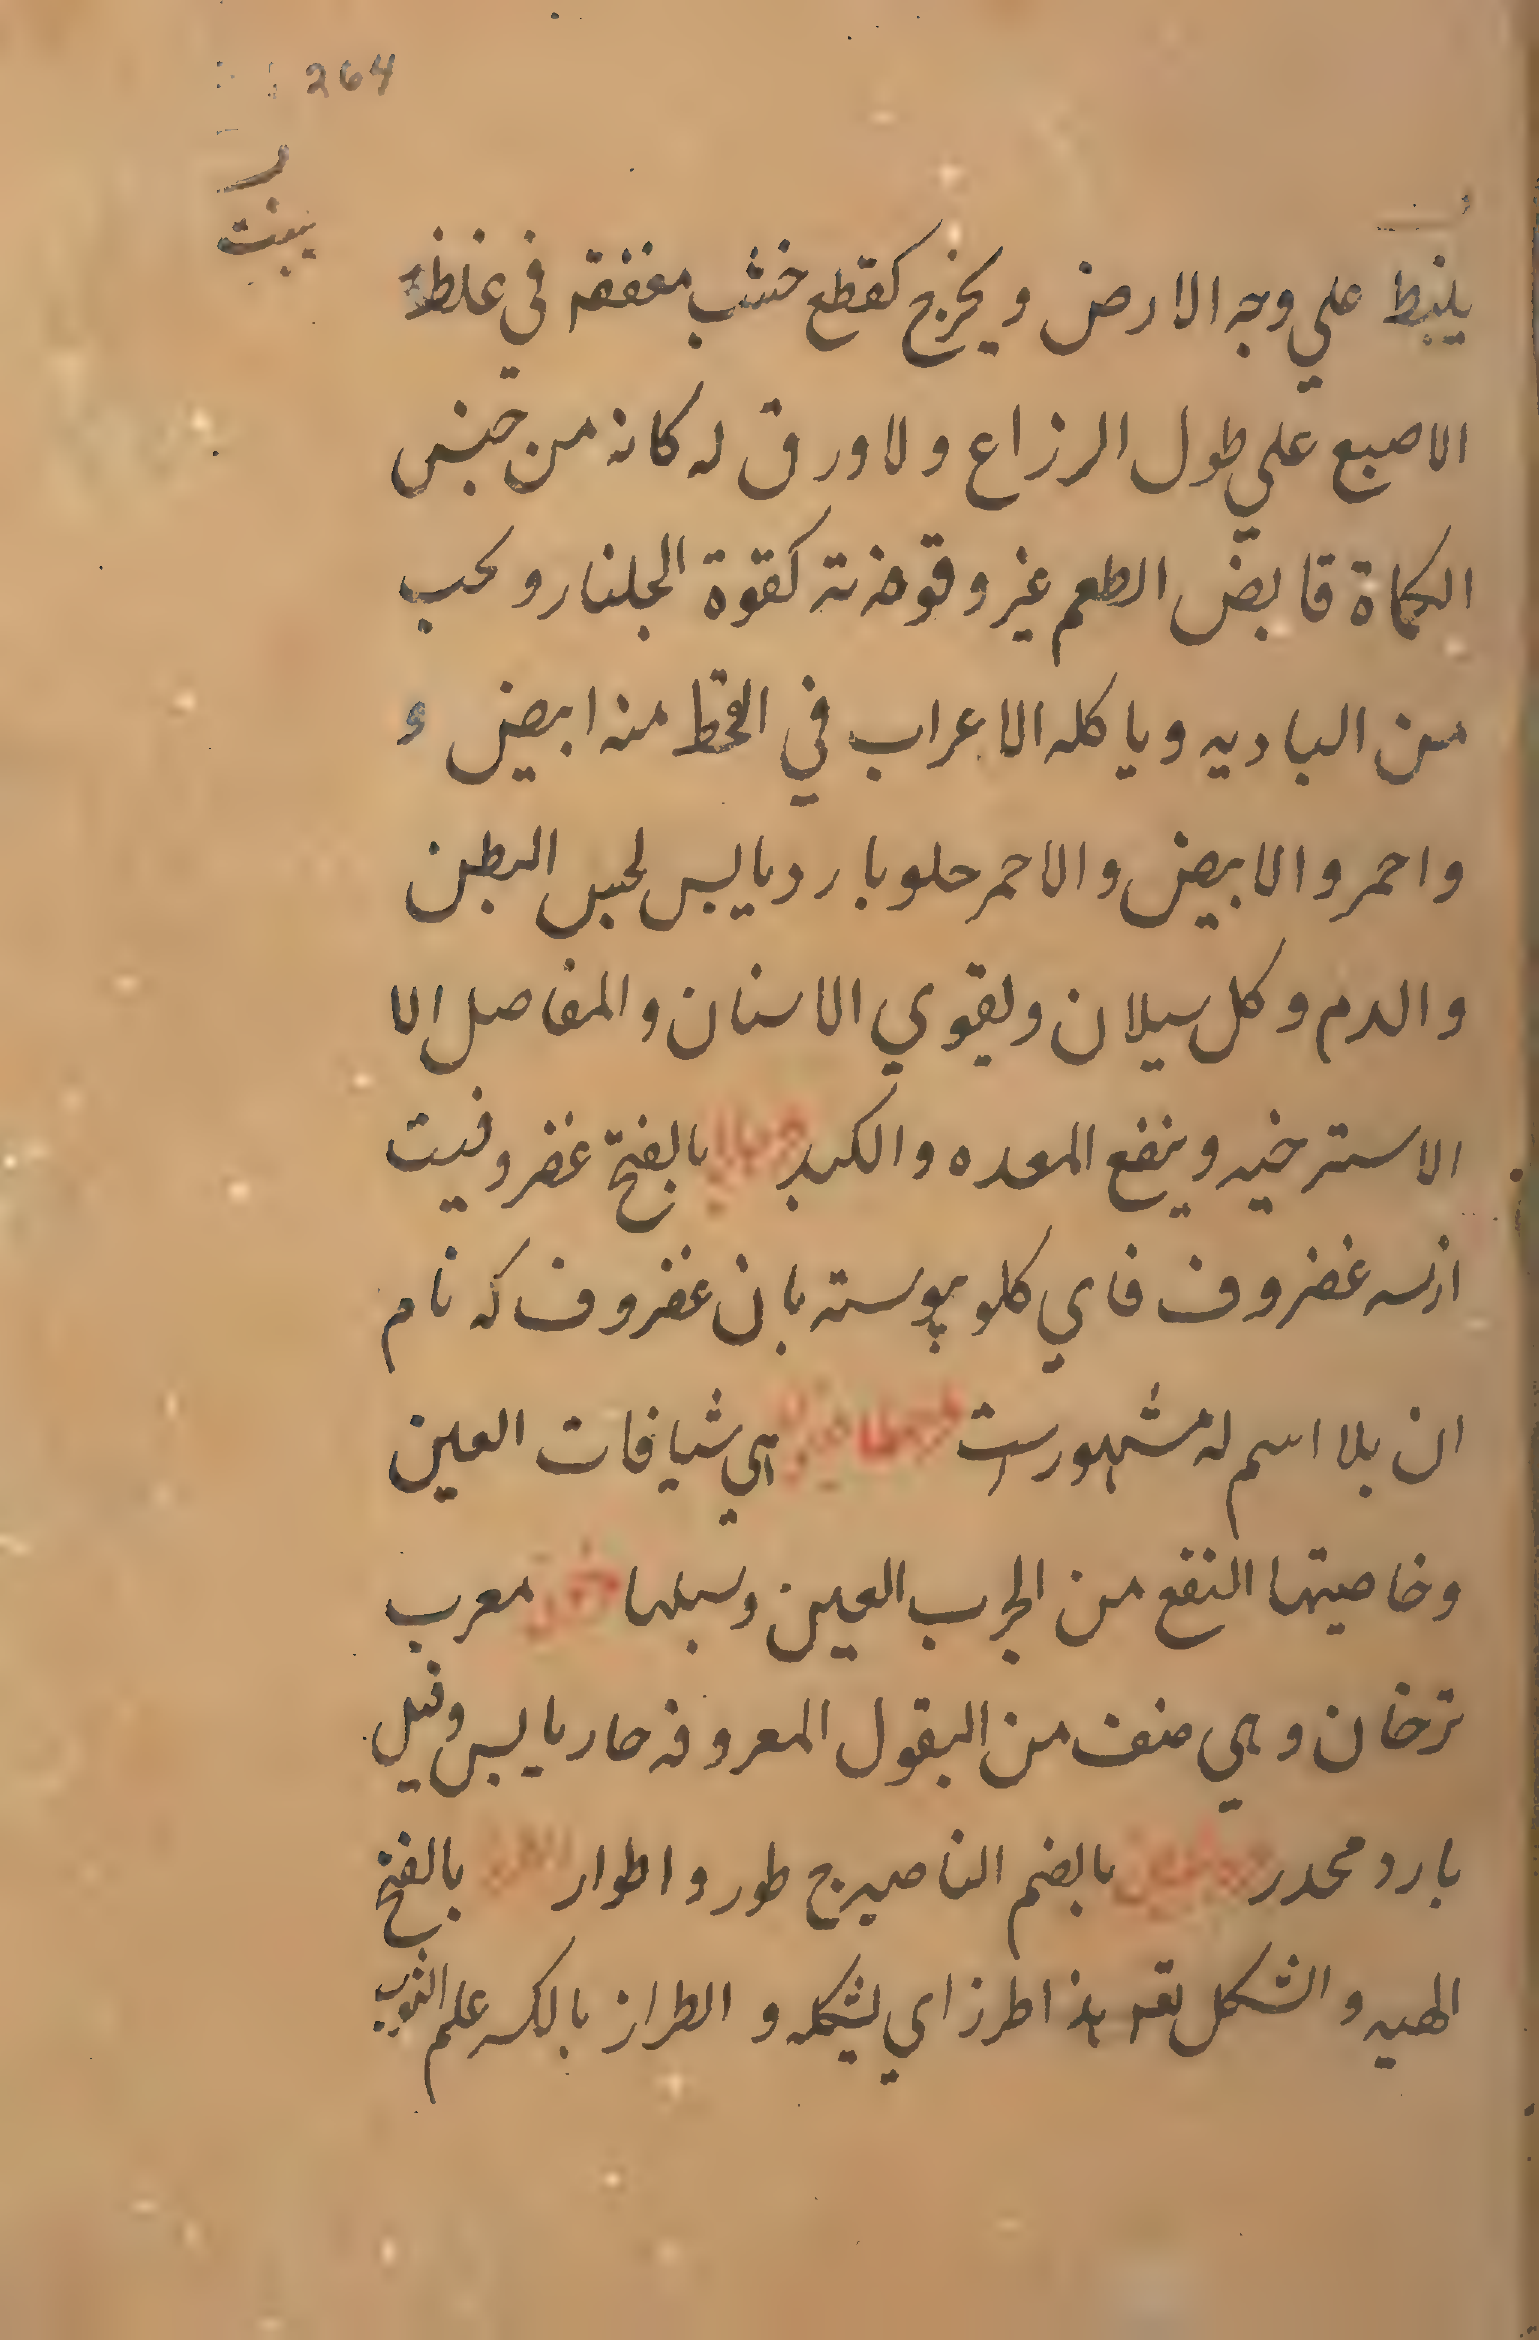 264
ينبت
ينبط علي وجه الارض و يخرج كقطع خشب مغفقه في غلظ
الاصبع علي طول الرزاع و لا ورق له كانه من جنس
الكماة قابض الطعم غير و قوضته كقوة الجلنار و تحب
من الباديه و ياكله الاعراب في القحط منه ابيض و
و احمر و الابيض و الاحمر حلو بارد يابس لحبس البطن
و الدم و كل سيلان و يقوي الاسنان و المفاصل الا
الاسترخيه و ينفع المعده و الكبد بالفتح غضروفيت
ازسه غضروف فاي كلو پيوسته بان غضروف كه نام
ان بلا اسم له مشهورست هي شيافات العين
و خاصيتها النفع من الجرب العين و سبلها معرب
ترخان و هي صنف من البقول المعروفه حار يابس و قيل
بارد مخدر بالضم الناصيه ج طور و اطوار بالفتح
الهيه و الشكل يقه هذا طرز اي لشكله و الطراز بالكسر علم الثوب